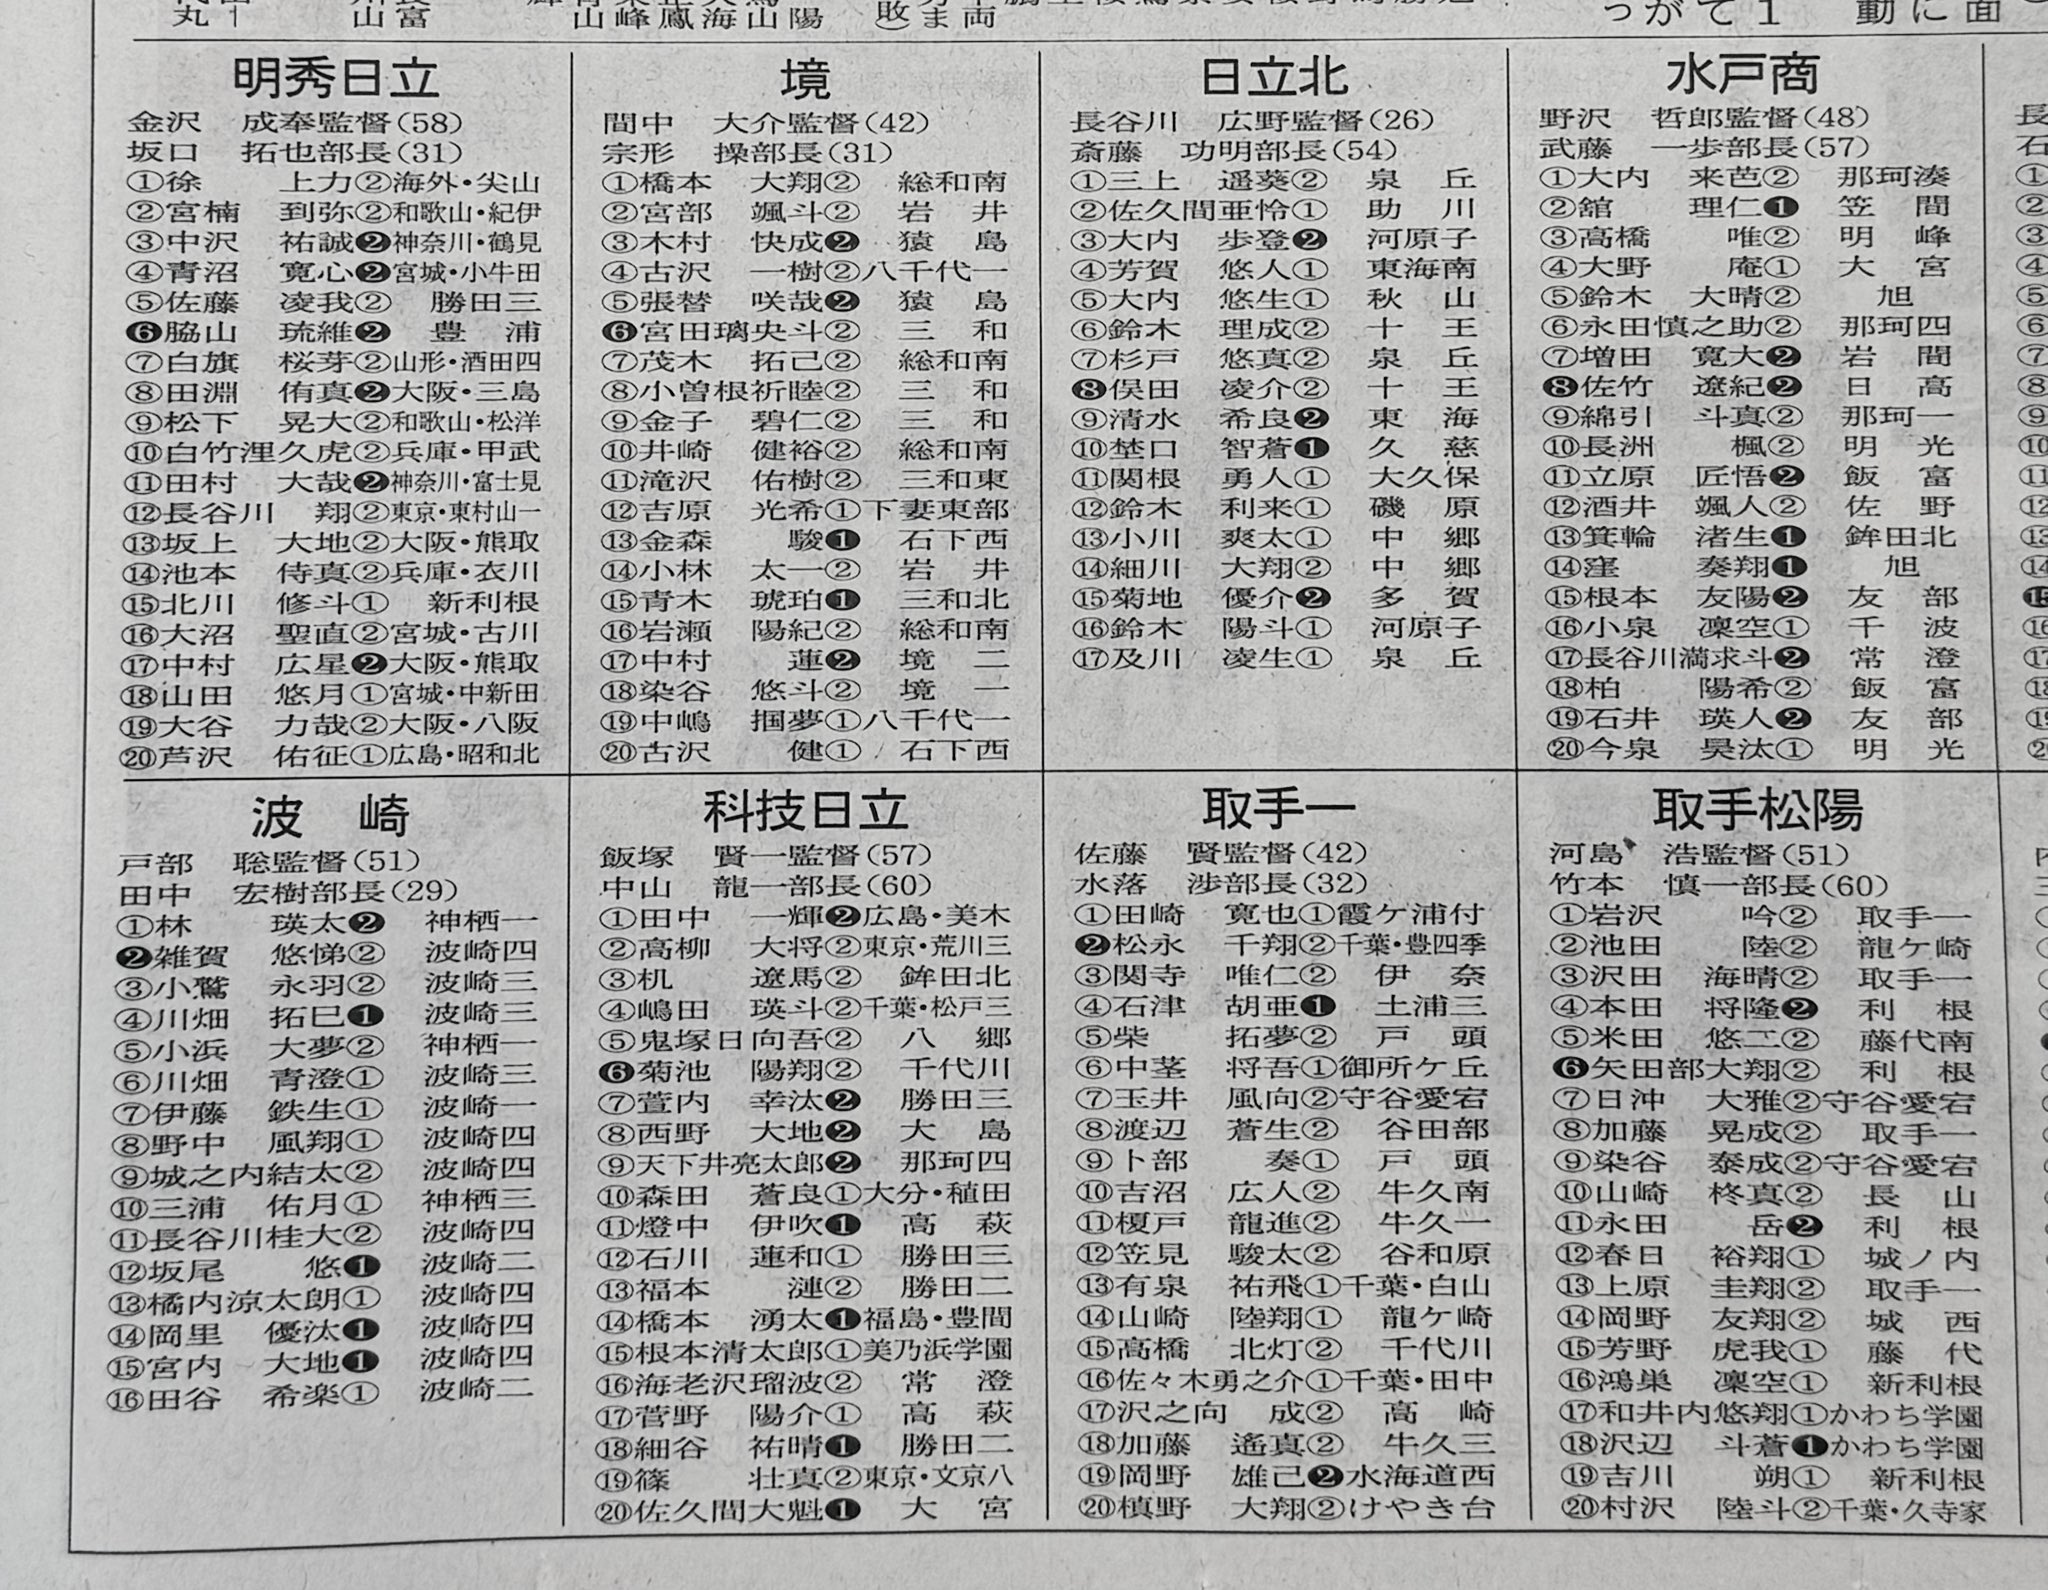 明秀日立
金沢　成奉監督(58)
坂口　拓也部長(31)
①徐　上力②海外・尖山
②宮楠　到弥②和歌山・紀伊
③中沢　祐誠❷神奈川・鶴見
④青沼　寛心❷宮城・小牛田
⑤佐藤　凌我②　勝田三
❻脇山　琉維❷　豊浦
⑦白旗　桜芽②山形・酒田四
⑧田淵　侑真❷大阪・三島
⑨松下　晃大②和歌山・松洋
⑩白竹浬久虎②兵庫・甲武
⑪田村　大哉❷神奈川・富士見
⑫長谷川　翔②東京・東村山一
⑬坂上　大地②大阪・熊取
⑭池本　侍真②兵庫・衣川
⑮北川　修斗①　新利根
⑯大沼　聖直②宮城・古川
⑰中村　広星❷大阪・熊取
⑱山田　悠月①宮城・中新田
⑲大谷　力哉②大阪・八阪
⑳芦沢　佑征①広島・昭和北
境
間中　大介監督(42)
宗形　操部長(31)
①橋本　大翔②　総和南
②宮部　颯斗②　岩井
③木村　快成❷　猿島
④古沢　一樹②八千代一
⑤張替　咲哉❷　猿島
❻宮田璃央斗②　三和
⑦茂木　拓己②　総和南
⑧小曽根祈睦②　三和
⑨金子　碧仁②　三和
⑩井崎　健裕②　総和南
⑪滝沢　佑樹②　三和東
⑫吉原　光希①下妻東部
⑬金森　駿❶　石下西
⑭小林　太一②　岩井
⑮青木　琥珀❶　三和北
⑯岩瀬　陽紀②　総和南
⑰中村　蓮❷　境二
⑱染谷　悠斗②　境一
⑲中嶋　掴夢①八千代一
⑳古沢　健①　石下西
日立北
長谷川　広野監督(26)
斎藤　功明部長(54)
①三上　遥葵②　泉丘
②佐久間亜怜①　助川
③大内　歩登❷　河原子
④芳賀　悠人①　東海南
⑤大内　悠生①　秋山
⑥鈴木　理成②　十王
⑦杉戸　悠真②　泉丘
❽俣田　凌介②　十王
⑨清水　希良❷　東海
⑩埜口　智蒼❶　久慈
⑪関根　勇人①　大久保
⑫鈴木　利来①　磯原
⑬小川　爽太①　中郷
⑭細川　大翔②　中郷
⑮菊地　優介❷　多賀
⑯鈴木　陽斗①　河原子
⑰及川　凌生①　泉丘
水戸商
野沢　哲郎監督(48)
武藤　一歩部長(57)
①大内　来芭②　那珂湊
②舘　理仁❶　笠間
③高橋　唯②　明峰
④大野　庵①　大宮
⑤鈴木　大晴②　旭
⑥永田慎之助②　那珂四
⑦増田　寛大❷　岩間
❽佐竹　遼紀❷　日高
⑨綿引　斗真②　那珂一
⑩長洲　楓②　明光
⑪立原　匠悟❷　飯富
⑫酒井　颯人②　佐野
⑬箕輪　渚生❶　鉾田北
⑭窪　奏翔❶　旭
⑮根本　友陽❷　友部
⑯小泉　凜空①　千波
⑰長谷川満求斗❷　常澄
⑱柏　陽希②　飯富
⑲石井　瑛人❷　友部
⑳今泉　昊汰①　明光
波崎
戸部　聡監督(51)
田中　宏樹部長(29)
①林　瑛太❷　神栖一
❷雑賀　悠悌②　波崎四
③小鷲　永羽②　波崎三
④川畑　拓巳❶　波崎三
⑤小浜　大夢②　神栖一
⑥川畑　青澄①　波崎三
⑦伊藤　鉄生①　波崎一
⑧野中　風翔①　波崎四
⑨城之内結太②　波崎四
⑩三浦　佑月①　神栖三
⑪長谷川桂大②　波崎四
⑫坂尾　悠❶　波崎二
⑬橘内涼太朗①　波崎四
⑭岡里　優汰❶　波崎四
⑮宮内　大地❶　波崎四
⑯田谷　希楽①　波崎二
科技日立
飯塚　賢一監督(57)
中山　龍一部長(60)
①田中　一輝❷広島・美木
②高柳　大将②東京・荒川三
③机　遼馬②　鉾田北
④嶋田　瑛斗②千葉・松戸三
⑤鬼塚日向吾②　八郷
❻菊池　陽翔②　千代川
⑦萱内　幸汰❷　勝田三
⑧西野　大地❷　大島
⑨天下井亮太郎❷　那珂四
⑩森田　蒼良①大分・稙田
⑪燈中　伊吹❶　高萩
⑫石川　蓮和①　勝田三
⑬福本　漣②　勝田二
⑭橋本　湧太❶福島・豊間
⑮根本清太郎①美乃浜学園
⑯海老沢瑠波②　常澄
⑰菅野　陽介①　高萩
⑱細谷　祐晴❶　勝田二
⑲篠　壮真②東京・文京八
⑳佐久間大魁❶　大宮
取手一
佐藤　賢監督(42)
水落　渉部長(32)
①田崎　寛也①霞ケ浦付
❷松永　千翔②千葉・豊四季
③関寺　唯仁②　伊奈
④石津　胡亜❶　土浦三
⑤柴　拓夢②　戸頭
⑥中茎　将吾①御所ケ丘
⑦玉井　風向②守谷愛宕
⑧渡辺　蒼生②　谷田部
⑨卜部　奏①　戸頭
⑩吉沼　広人②　牛久南
⑪榎戸　龍進②　牛久一
⑫笠見　駿太②　谷和原
⑬有泉　祐飛①千葉・白山
⑭山崎　陸翔①　龍ケ崎
⑮高橋　北灯②　千代川
⑯佐々木勇之介①千葉・田中
⑰沢之向　成②　高崎
⑱加藤　遙真②　牛久三
⑲岡野　雄己❷水海道西
⑳槙野　大翔②けやき台
取手松陽
河島　浩監督(51)
竹本　慎一部長(60)
①岩沢　吟②　取手一
②池田　陸②　龍ケ崎
③沢田　海晴②　取手一
④本田　将隆❷　利根
⑤米田　悠二②　藤代南
❻矢田部大翔②　利根
⑦日沖　大雅②守谷愛宕
⑧加藤　晃成②　取手一
⑨染谷　泰成②守谷愛宕
⑩山崎　柊真②　長山
⑪永田　岳❷　利根
⑫春日　裕翔①　城ノ内
⑬上原　圭翔②　取手一
⑭岡野　友翔②　城西
⑮芳野　虎我①　藤代
⑯鴻巣　凜空①　新利根
⑰和井内悠翔①かわち学園
⑱沢辺　斗蒼❶かわち学園
⑲吉川　朔①　新利根
⑳村沢　陸斗②千葉・久寺家